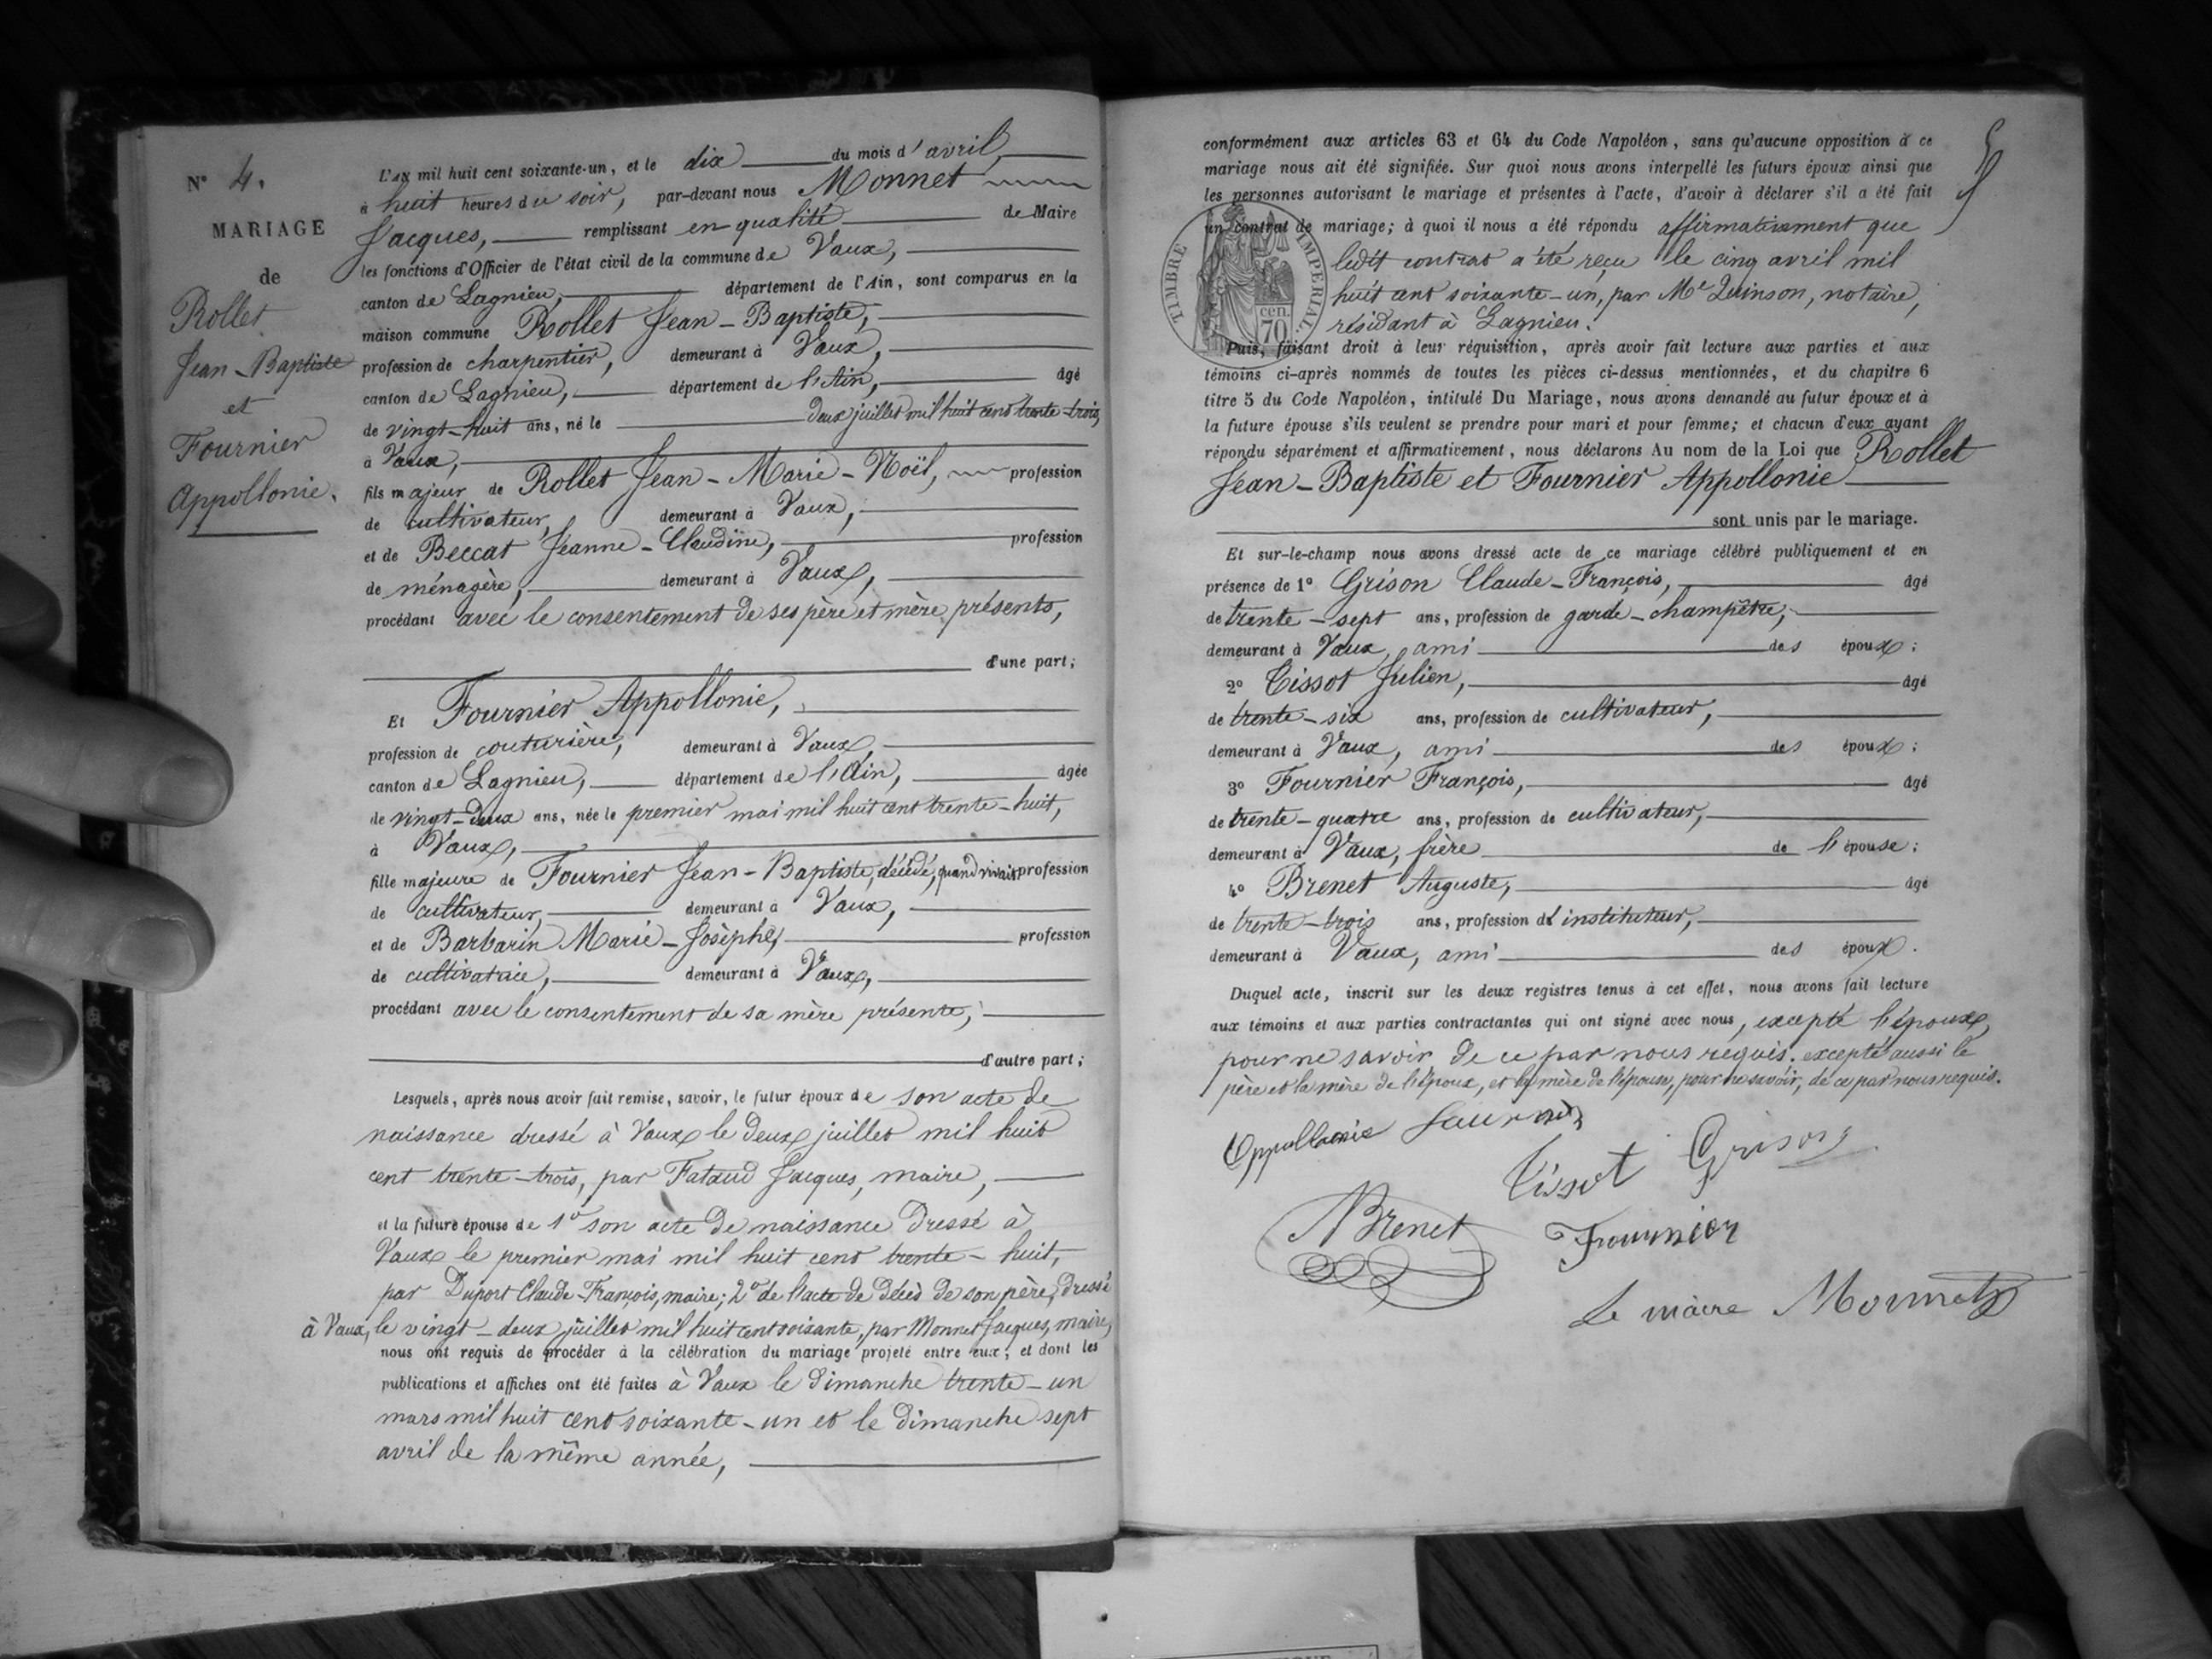 N° 4.
MARIAGE
de
Rollet
Jean-Baptiste
et
Fournier
Appollonie.
L'an mil huit cent soixante-un, et le dix du mois d'avril,
à huit heures du soir, par-devant nous Monnet
Jacques, remplissant en qualité de Maire
les fonctions d'Officier de l'état civil de la commune de Vaux,
canton de Lagnieu, département de l'Ain, sont comparus en la
maison commune Rollet Jean-Baptiste,
profession de charpentier, demeurant à Vaux,
canton de Lagnieu, département de l'Ain, âgé
de vingt-huit ans, né le deux juillet mil huit cent trente-trois,
à Vaux,
fils majeur de Rollet Jean-Marie-Noël, profession
de cultivateur, demeurant à Vaux,
et de Beccat Jeanne-Claudine, profession
de ménagère, demeurant à Vaux,
procédant avec le consentement de ses père et mère présents,
d'une part;
Et Fournier Appollonie,
profession de couturière, demeurant à Vaux,
canton de Lagnieu, département de l'Ain, âgée
de vingt-deux ans, née le premier mai mil huit cent trente-huit,
à Vaux,
fille majeure de Fournier Jean-Baptiste, décédé, quand vivait profession
de cultivateur, demeurant à Vaux,
et de Barbarin Marie-Josèphe, profession
de cultivatrice, demeurant à Vaux,
procédant avec le consentement de sa mère présente,
d'autre part;
Lesquels, après nous avoir fait remise, savoir, le futur époux de son acte de
naissance dressé à Vaux le deux juillet mil huit
cent trente-trois, par Fataud Jacques, maire,
et la future épouse de 1° son acte de naissance dressé à
Vaux le premier mai mil huit cent trente-huit,
par Duport Claude-François, maire; 2° de l'acte de décès de son père, dressé
à Vaux, le vingt-deux juillet mil huit cent soixante, par Monnet Jacques, maire,
nous ont requis de procéder à la célébration du mariage projeté entre eux, et dont les
publications et affiches ont été faites à Vaux le dimanche trente-un
mars mil huit cent soixante-un et le dimanche sept
avril de la même année,
5
conformément aux articles 63 et 64 du Code Napoléon, sans qu'aucune opposition à ce
mariage nous ait été signifiée. Sur quoi nous avons interpellé les futurs époux ainsi que
les personnes autorisant le mariage et présentes à l'acte, d'avoir à déclarer s'il a été fait
un contrat de mariage; à quoi il nous a été répondu affirmativement que
ledit contrat a été reçu le cinq avril mil
huit cent soixante-un, par Me Quinson, notaire,
résidant à Lagnieu.
TIMBRE IMPERIAL.
cen.
70
Puis, faisant droit à leur réquisition, après avoir fait lecture aux parties et aux
témoins ci-après nommés de toutes les pièces ci-dessus mentionnées, et du chapitre 6
titre 5 du Code Napoléon, intitulé Du Mariage, nous avons demandé au futur époux et à
la future épouse s'ils veulent se prendre pour mari et pour femme; et chacun d'eux ayant
répondu séparément et affirmativement, nous déclarons Au nom de la Loi que Rollet
Jean-Baptiste et Fournier Appollonie
sont unis par le mariage.
Et sur-le-champ nous avons dressé acte de ce mariage célébré publiquement et en
présence de 1° Grison Claude-François, âgé
de trente-sept ans, profession de garde-champêtre,
demeurant à Vaux, ami des époux;
2° Tissot Julien, âgé
de trente-six ans, profession de cultivateur,
demeurant à Vaux, ami des époux;
3° Fournier François, âgé
de trente-quatre ans, profession de cultivateur,
demeurant à Vaux, frère de l'épouse;
4° Brenet Auguste, âgé
de trente-trois ans, profession d'instituteur,
demeurant à Vaux, ami des époux.
Duquel acte, inscrit sur les deux registres tenus à cet effet, nous avons fait lecture
aux témoins et aux parties contractantes qui ont signé avec nous, excepté l'époux,
pour ne savoir de ce par nous requis. excepté aussi le
père et la mère de l'époux, et la mère de l'épouse, pour ne savoir, de ce par nous requis.
Tissot Grison
ABrenet Fournier
Le maire Monnet